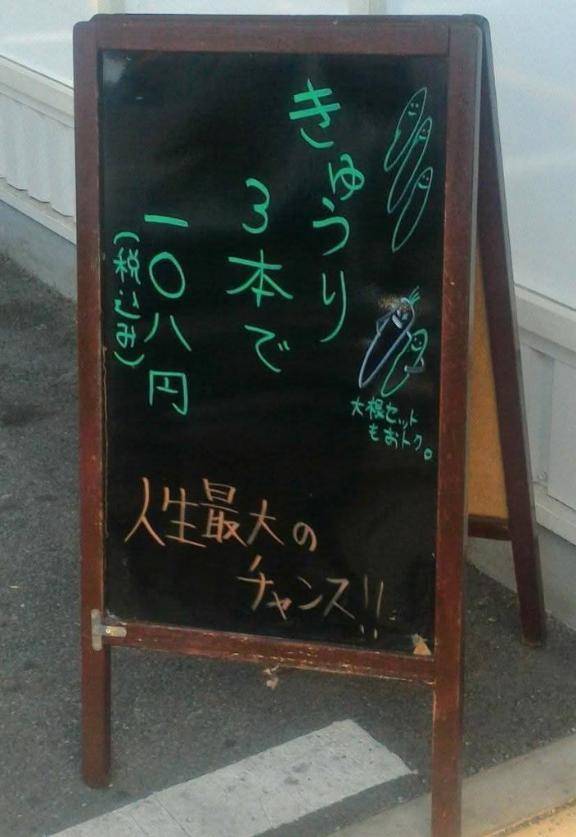 きゅうり
3本で
一〇八円
(税込み)
大根セット
もおトク。
人生最大の
チャンス!!